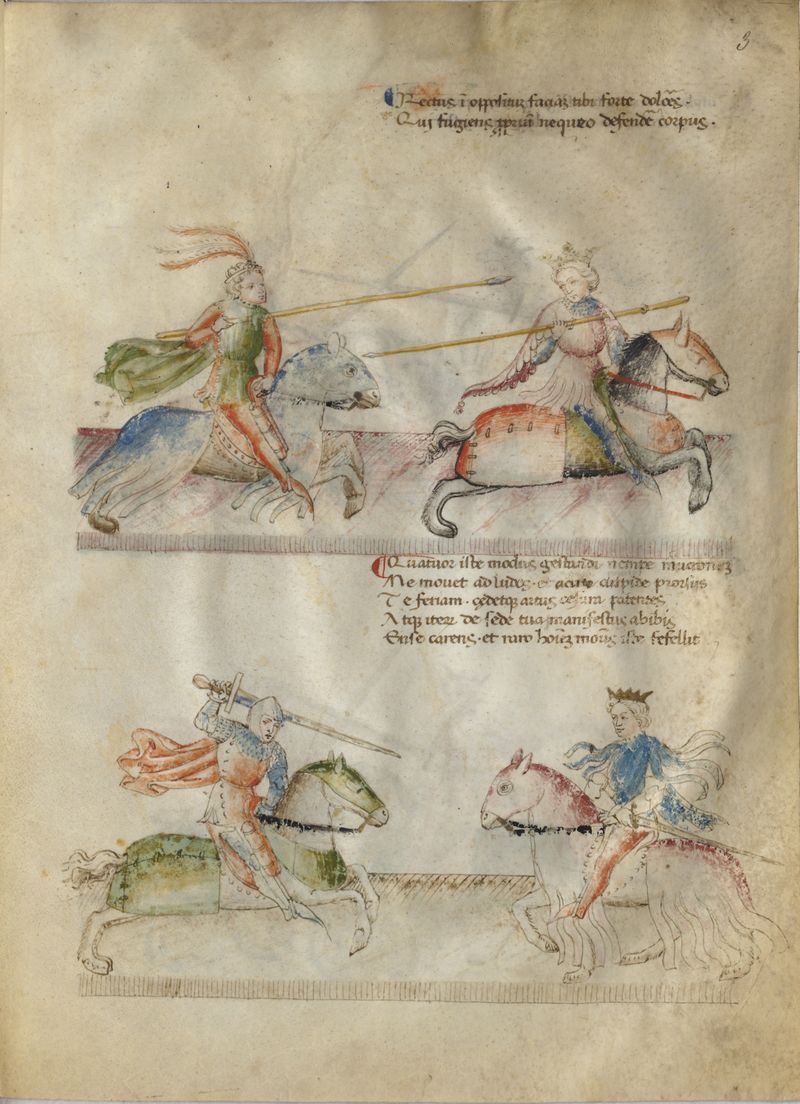 3
Rectus ī oppositum faciā tibi forte dolōes.
Qui fugiens ꝓpriū nequeo defendē corpus.
Quatuor iste modus gestandi nempe mucronē
Me movet ad ludos. et acute cuspide prorsus
Te feriam. cedetqꝫ artus patentes
Atqꝫ iterū de sede tua manifestus abibis
Ense carens. et raro hoīem iste fefellit